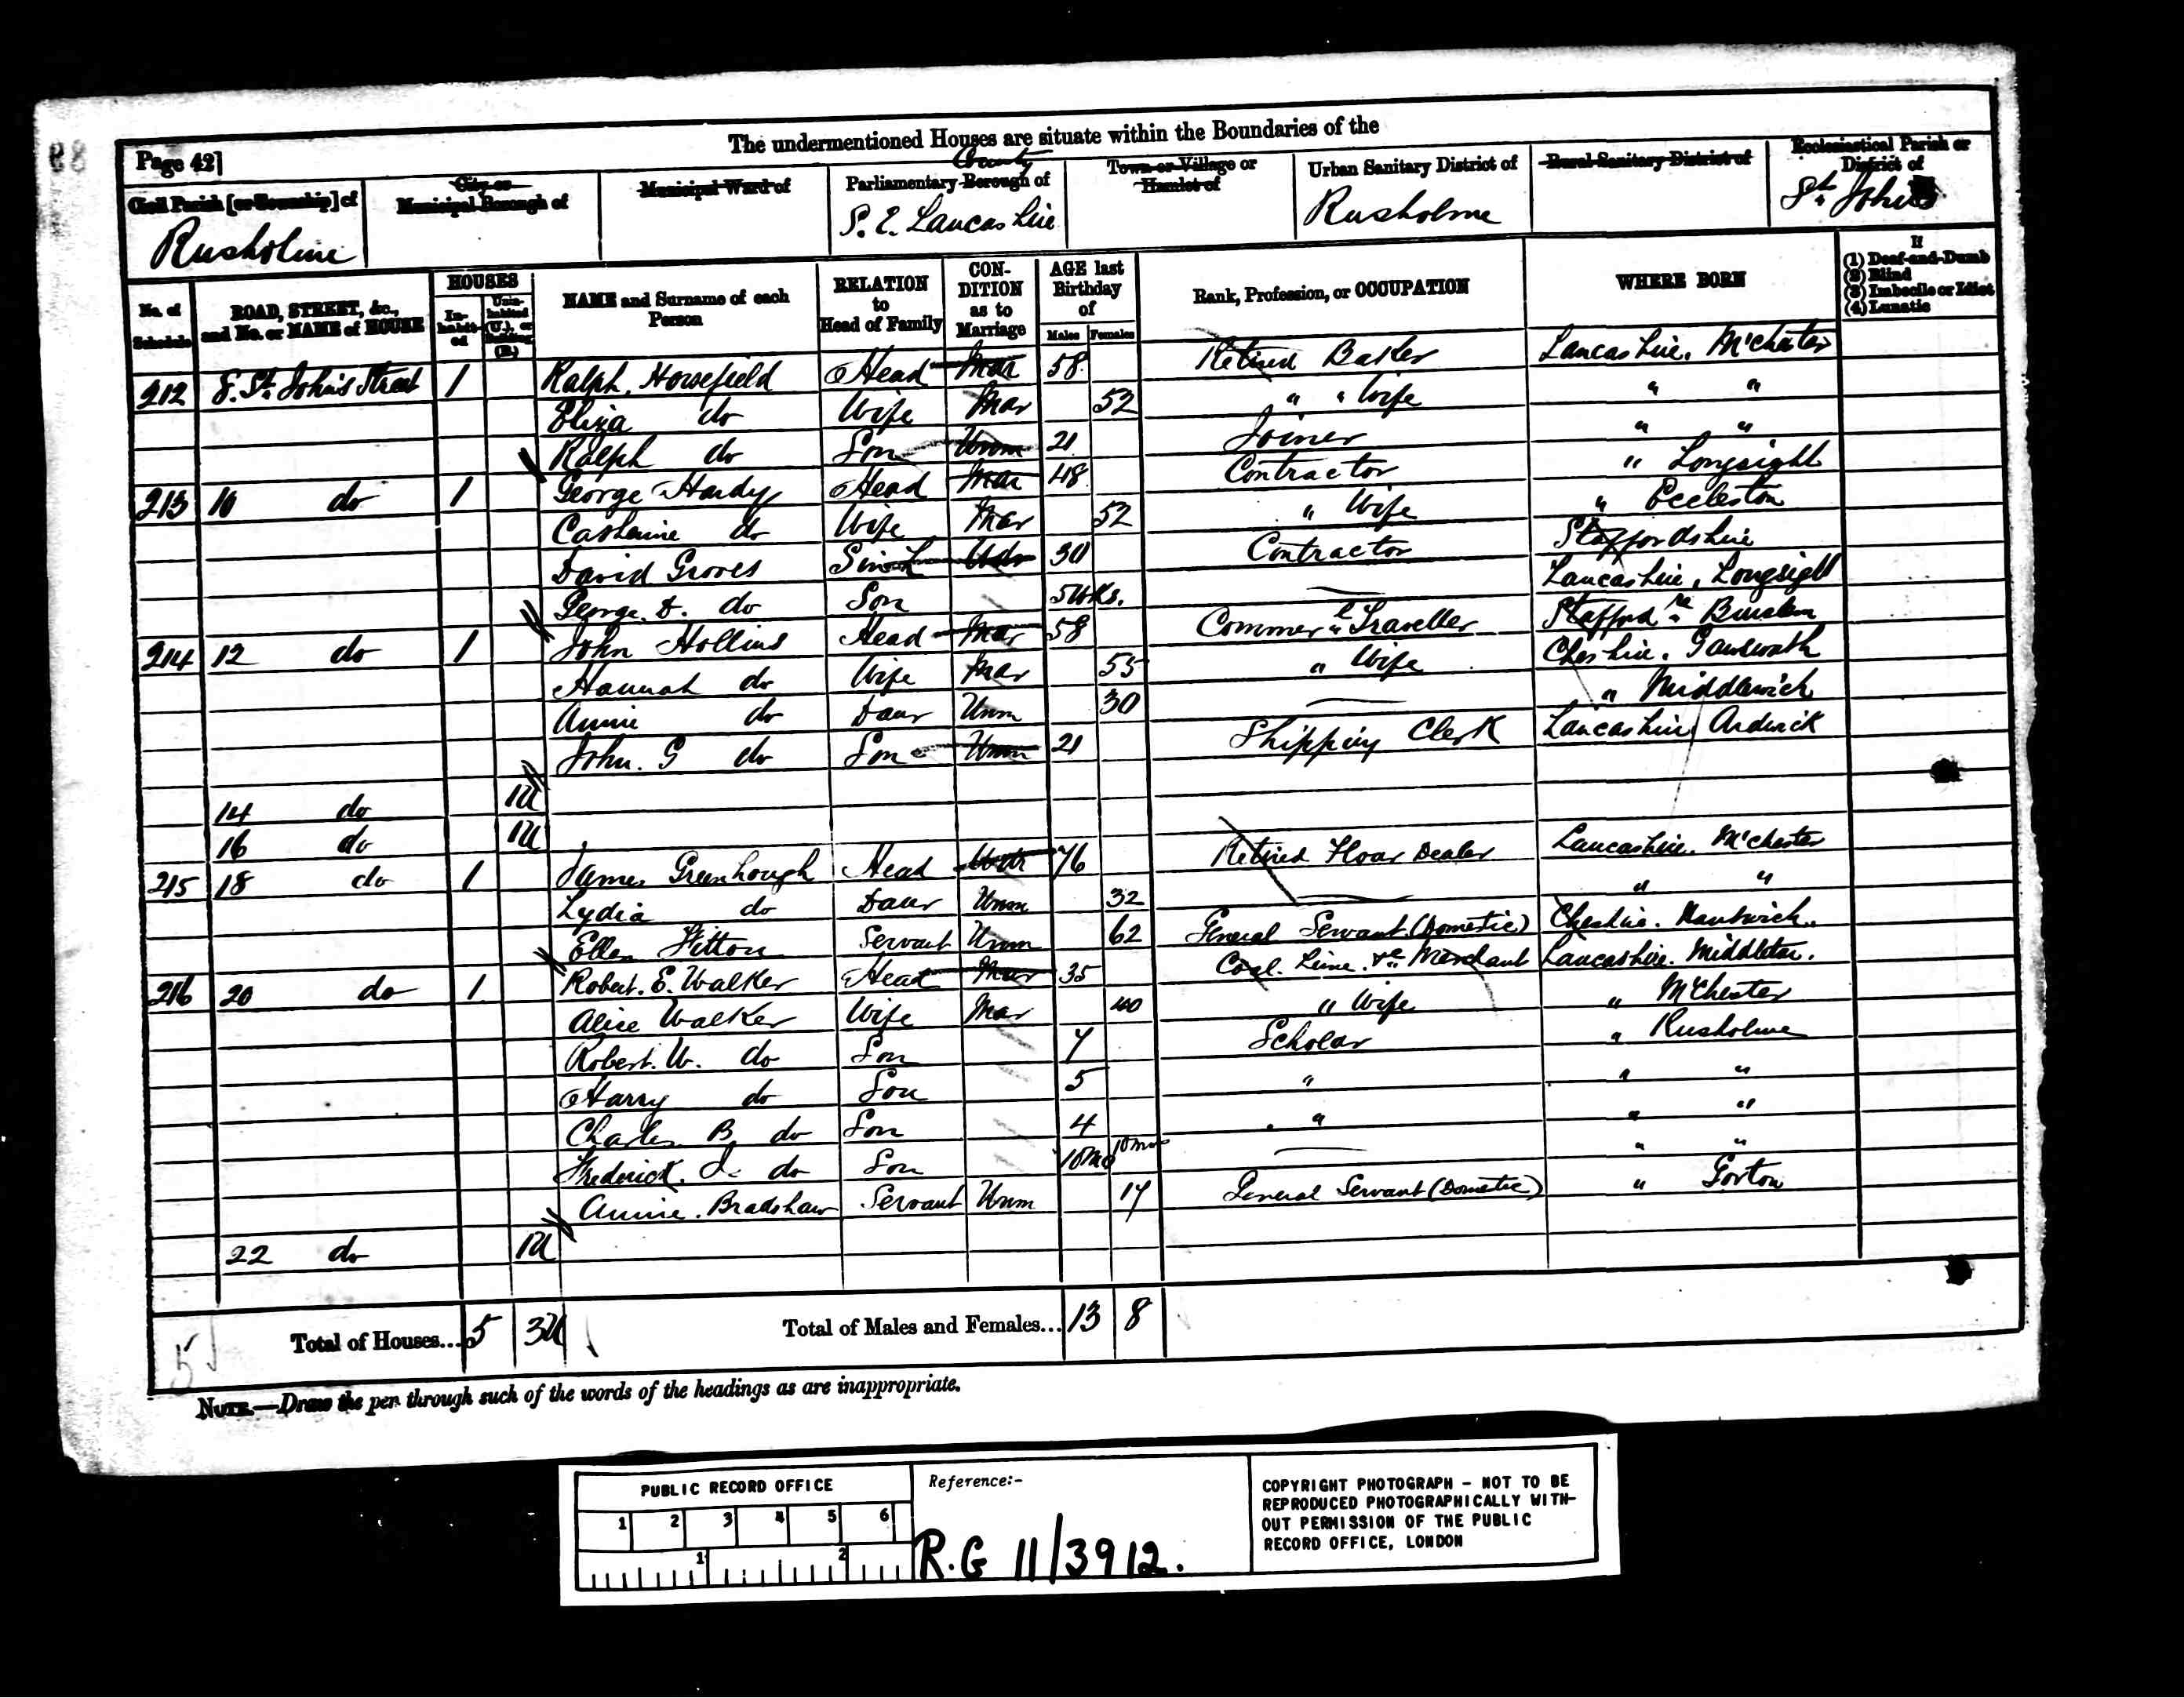 The undermentioned Houses are situate within the Boundaries of the
Page 42]
Civil Parish [or Township] of
Rusholme
City or Municipal Borough of
Municipal Ward of
County
Parliamentary Borough of
S. E. Lancashire
Town or Village or Hamlet of
Urban Sanitary District of
Rusholme
Rural Sanitary District of
Ecclesiastical Parish or District of
St. John's
No. of Schedule
ROAD, STREET, &c., and No. or NAME of HOUSE
HOUSES
In-habit-ed
Unin-habited (U.), or Building (B.)
NAME and Surname of each Person
RELATION to Head of Family
CON-DITION as to Marriage
AGE last Birthday of
Males Females
Rank, Profession, or OCCUPATION
WHERE BORN
If
(1) Deaf-and-Dumb
(2) Blind
(3) Imbecile or Idiot
(4) Lunatic
212 8. St. John's Street 1 Ralph. Horsefield Head Mar 58 Retired Baker Lancashire. M'chester
Eliza do Wife Mar 52 " " Wife " "
Ralph do Son Unm 21 Joiner " "
213 10 do 1 George Hardy Head Mar 48 Contractor " Longsight
Catherine do Wife Mar 52 " Wife " Eccleston
David Groves S in L 30 Contractor Staffordshire
George. D. do Son 5 Wks. Lancashire, Longsight
214 12 do 1 John Hollins Head Mar 58 Commerl Traveller Staffordre Burslem
Hannah do Wife Mar 55 " Wife Cheshire. Gawsworth
Annie do Daur Unm 30 " Middlewich
John. G do Son Unm 21 Shipping Clerk Lancashire Ardwick
14 do 1U
16 do 1U
215 18 do 1 James Greenhough Head Widr 76 Retired Flour Dealer Lancashire. M'chester
Lydia do Daur Unm 32 " "
Ellen Fitton Servant Unm 62 General Servant (Domestic) Cheshire. Nantwich.
216 20 do 1 Robert. E. Walker Head Mar 35 Coal. Lime. &c Merchant Lancashire. Middleton.
Alice Walker Wife Mar 40 " Wife " M'Chester
Robert. W. do Son 7 Scholar " Rusholme
Harry do Son 5 " " "
Charles B do Son 4 " " "
Frederick. J. do Son 10 Mo 10 mos " "
Annie. Bradshaw Servant Unm 17 General Servant (Domestic) " Gorton
22 do 1U
Total of Houses... 5 3U Total of Males and Females... 13 8
5
NOTE.—Draw the pen through such of the words of the headings as are inappropriate.
PUBLIC RECORD OFFICE
1 2 3 4 5 6
1 2
Reference:-
R.G 11/3912.
COPYRIGHT PHOTOGRAPH - NOT TO BE
REPRODUCED PHOTOGRAPHICALLY WITH-
OUT PERMISSION OF THE PUBLIC
RECORD OFFICE, LONDON